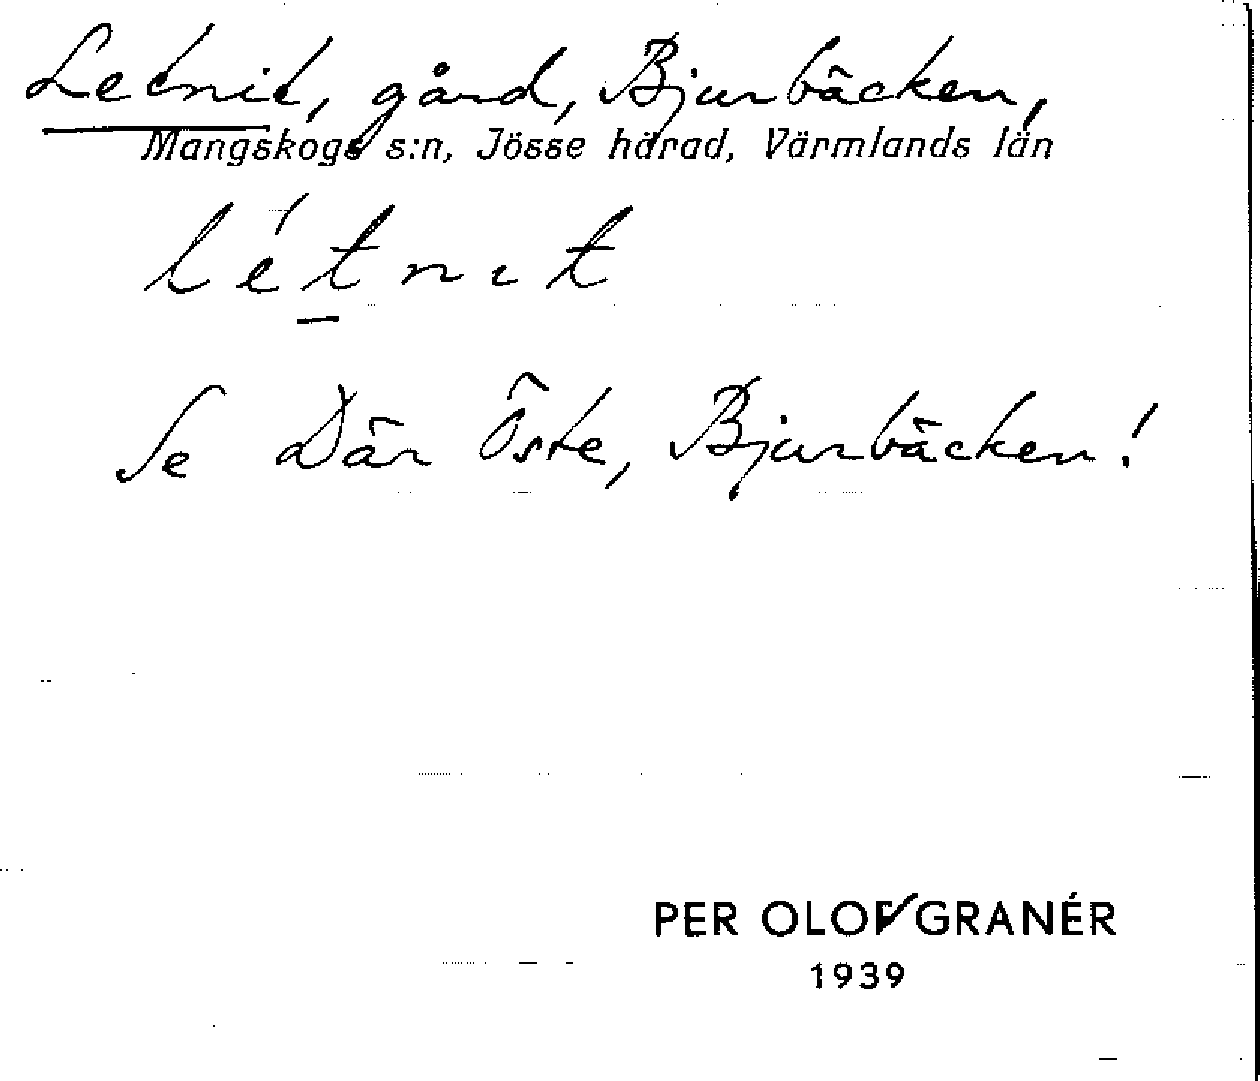 Letnit, gård, Bjurbäcken,
Mangskogs s:n, Jösse härad, Värmlands län
létnıt
Se Där Öste, Bjurbäcken!
PER OLOF GRANÉR
1939